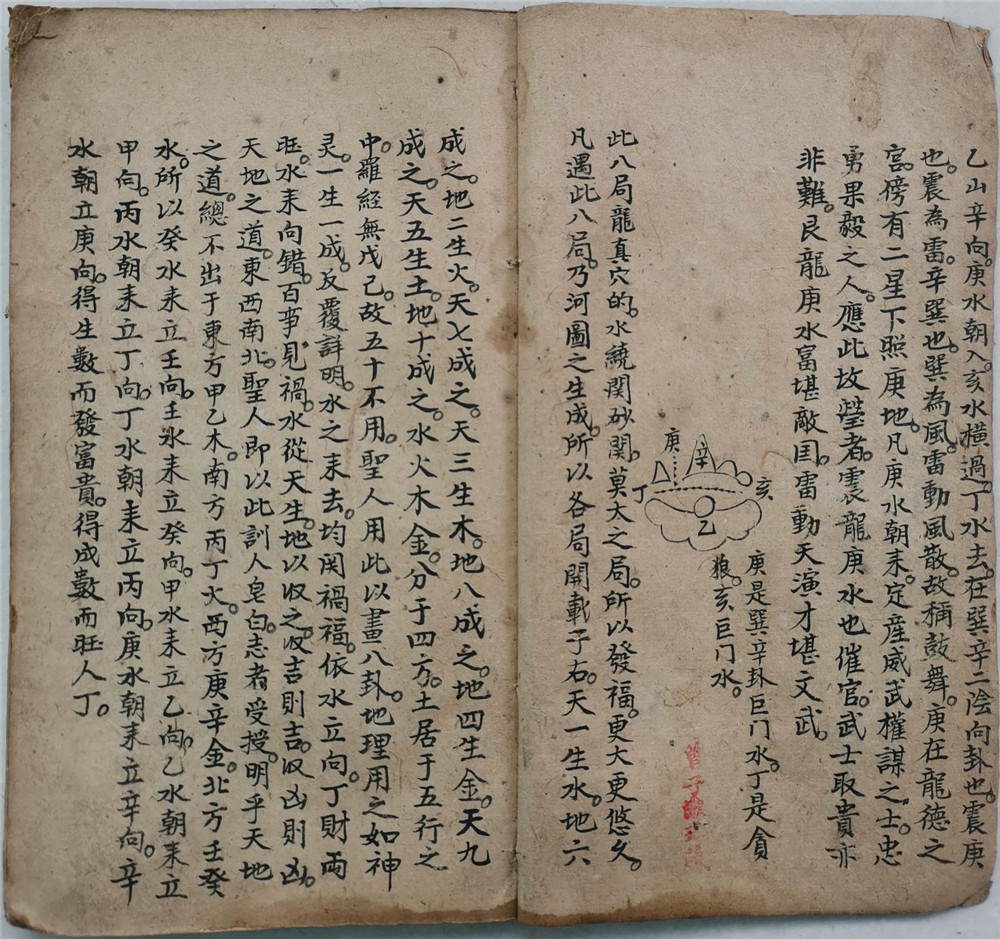 乙山辛向。庚水朝入。亥水橫過。丁水去。在巽辛二隂向卦也。震庚
也。震為雷。辛巽也。巽為風。雷動風散。故稱鼓舞。庚在龍德之
宮。傍有二星下照庚地。凡庚水朝耒。定産威武權謀之士。忠
勇果毅之人。應此故瑩者。震龍庚水也。催官。武士取貴亦
非難。艮龍庚水富堪敵囯。雷動天演才堪文武。
庚
辛
丁
亥
乙
庚是巽辛卦巨门水。丁是貪
狼。亥巨门水。
此八局龍真穴的。水繞関砂関。莫太之局。所以發福。更大更悠久。
凡遇此八局。乃河圖之生成。所以各局開載于右。天一生水。地六
成之。地二生火。天七成之。天三生木。地八成之。地四生金。天九
成之。天五生土。地十成之。水火木金。分于四方。土居于五行之
中。羅経無戊己。故五十不用。聖人用此以畫八卦。地理用之如神
灵。一生一成。反覆詳明。水之耒去。均関禍福。依水立向。丁財両
旺。水耒向錯。百亊見禍。水從天生。地以収之。収吉則吉。収凶則凶。
天地之道。東西南北。聖人即以此訓人皂白。志者受授。明乎天地
之道。總不出于東方甲乙木。南方丙丁火。西方庚辛金。北方壬癸
水。所以癸水耒立壬向。壬水耒立癸向。甲水耒立乙向。乙水朝耒立
甲向。丙水朝耒立丁向。丁水朝耒立丙向。庚水朝耒立辛向。辛
水朝立庚向。得生數而發富貴。得成數而旺人丁。